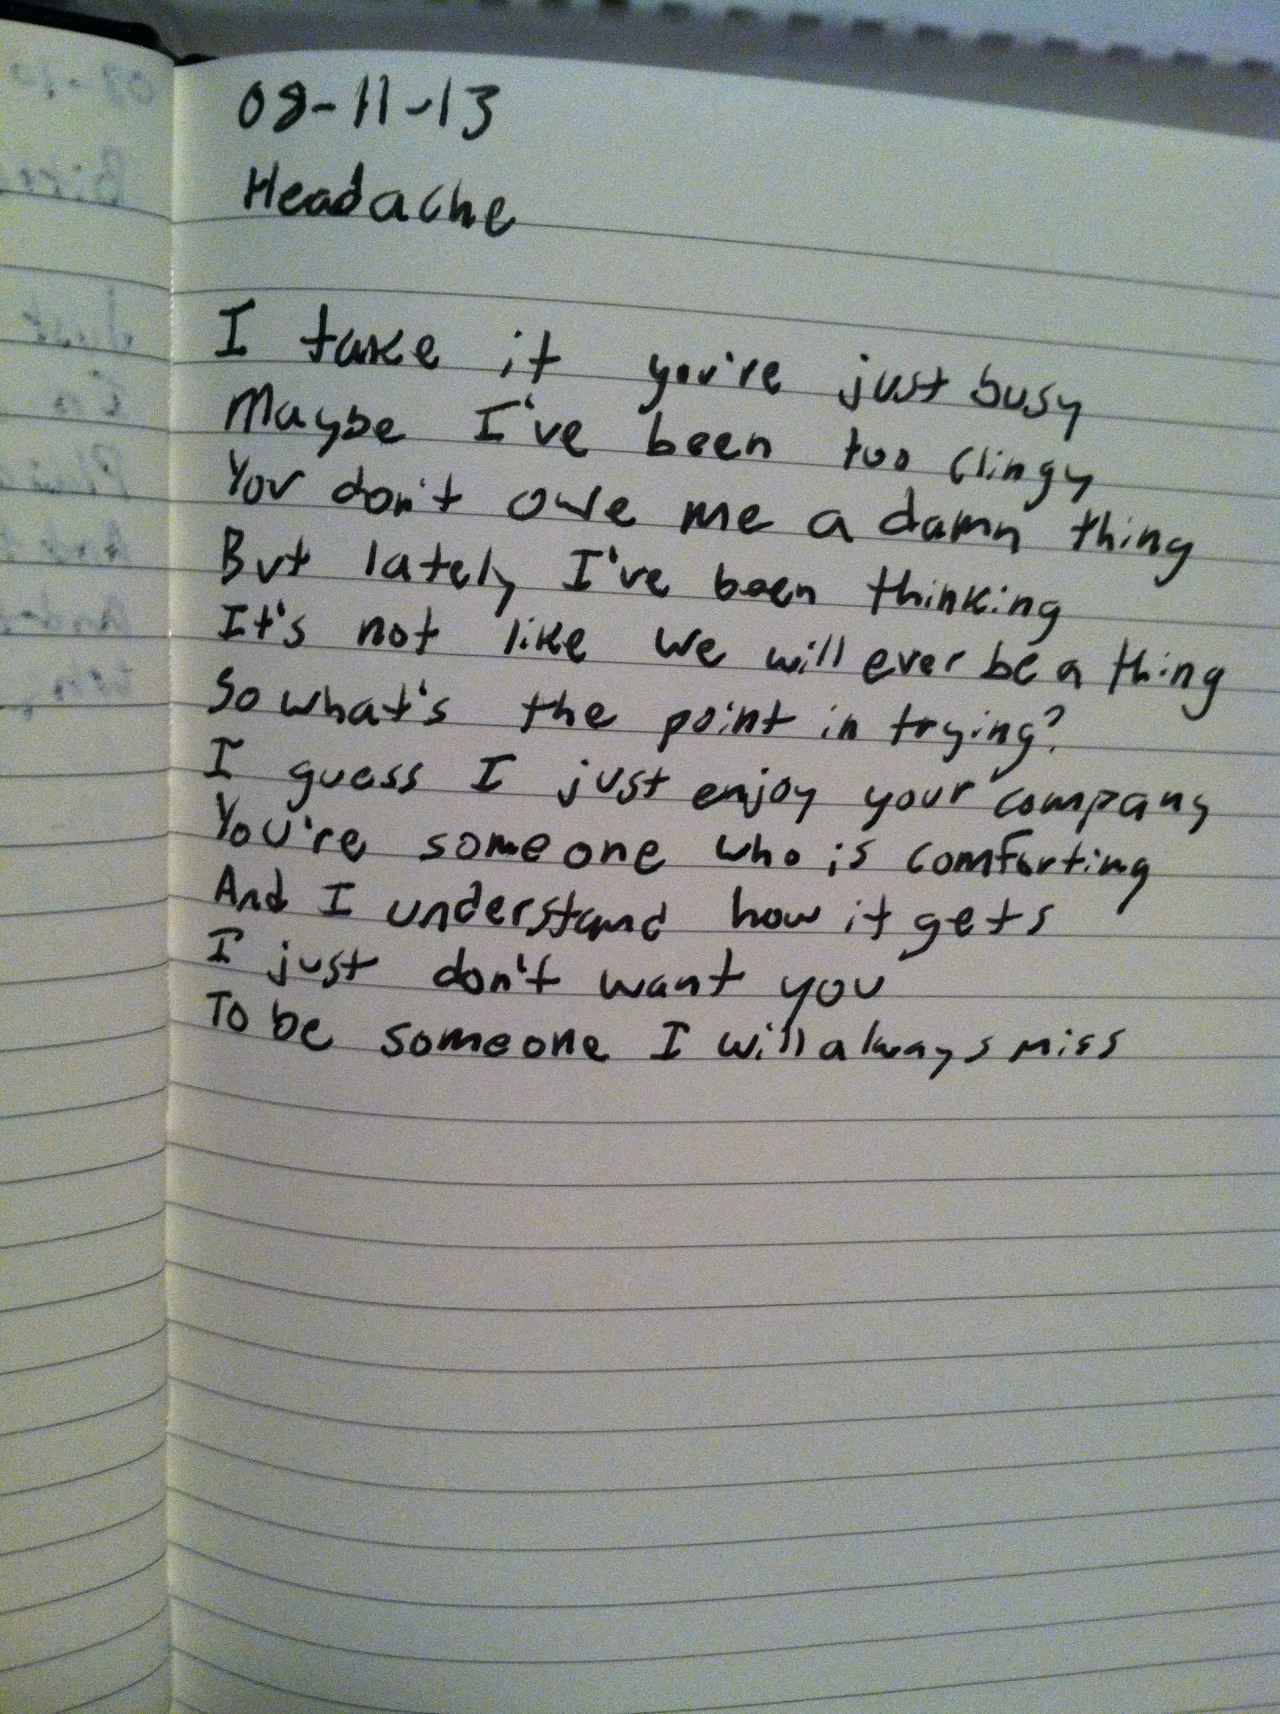 08-11-13
Headache
I take it you're just busy
Maybe I've been too clingy
You don't owe me a damn thing
But lately I've been thinking
It's not like we will ever be a thing
So what's the point in trying?
I guess I just enjoy your company
You're someone who is comforting
And I understand how it gets
I just don't want you
To be someone I will always miss